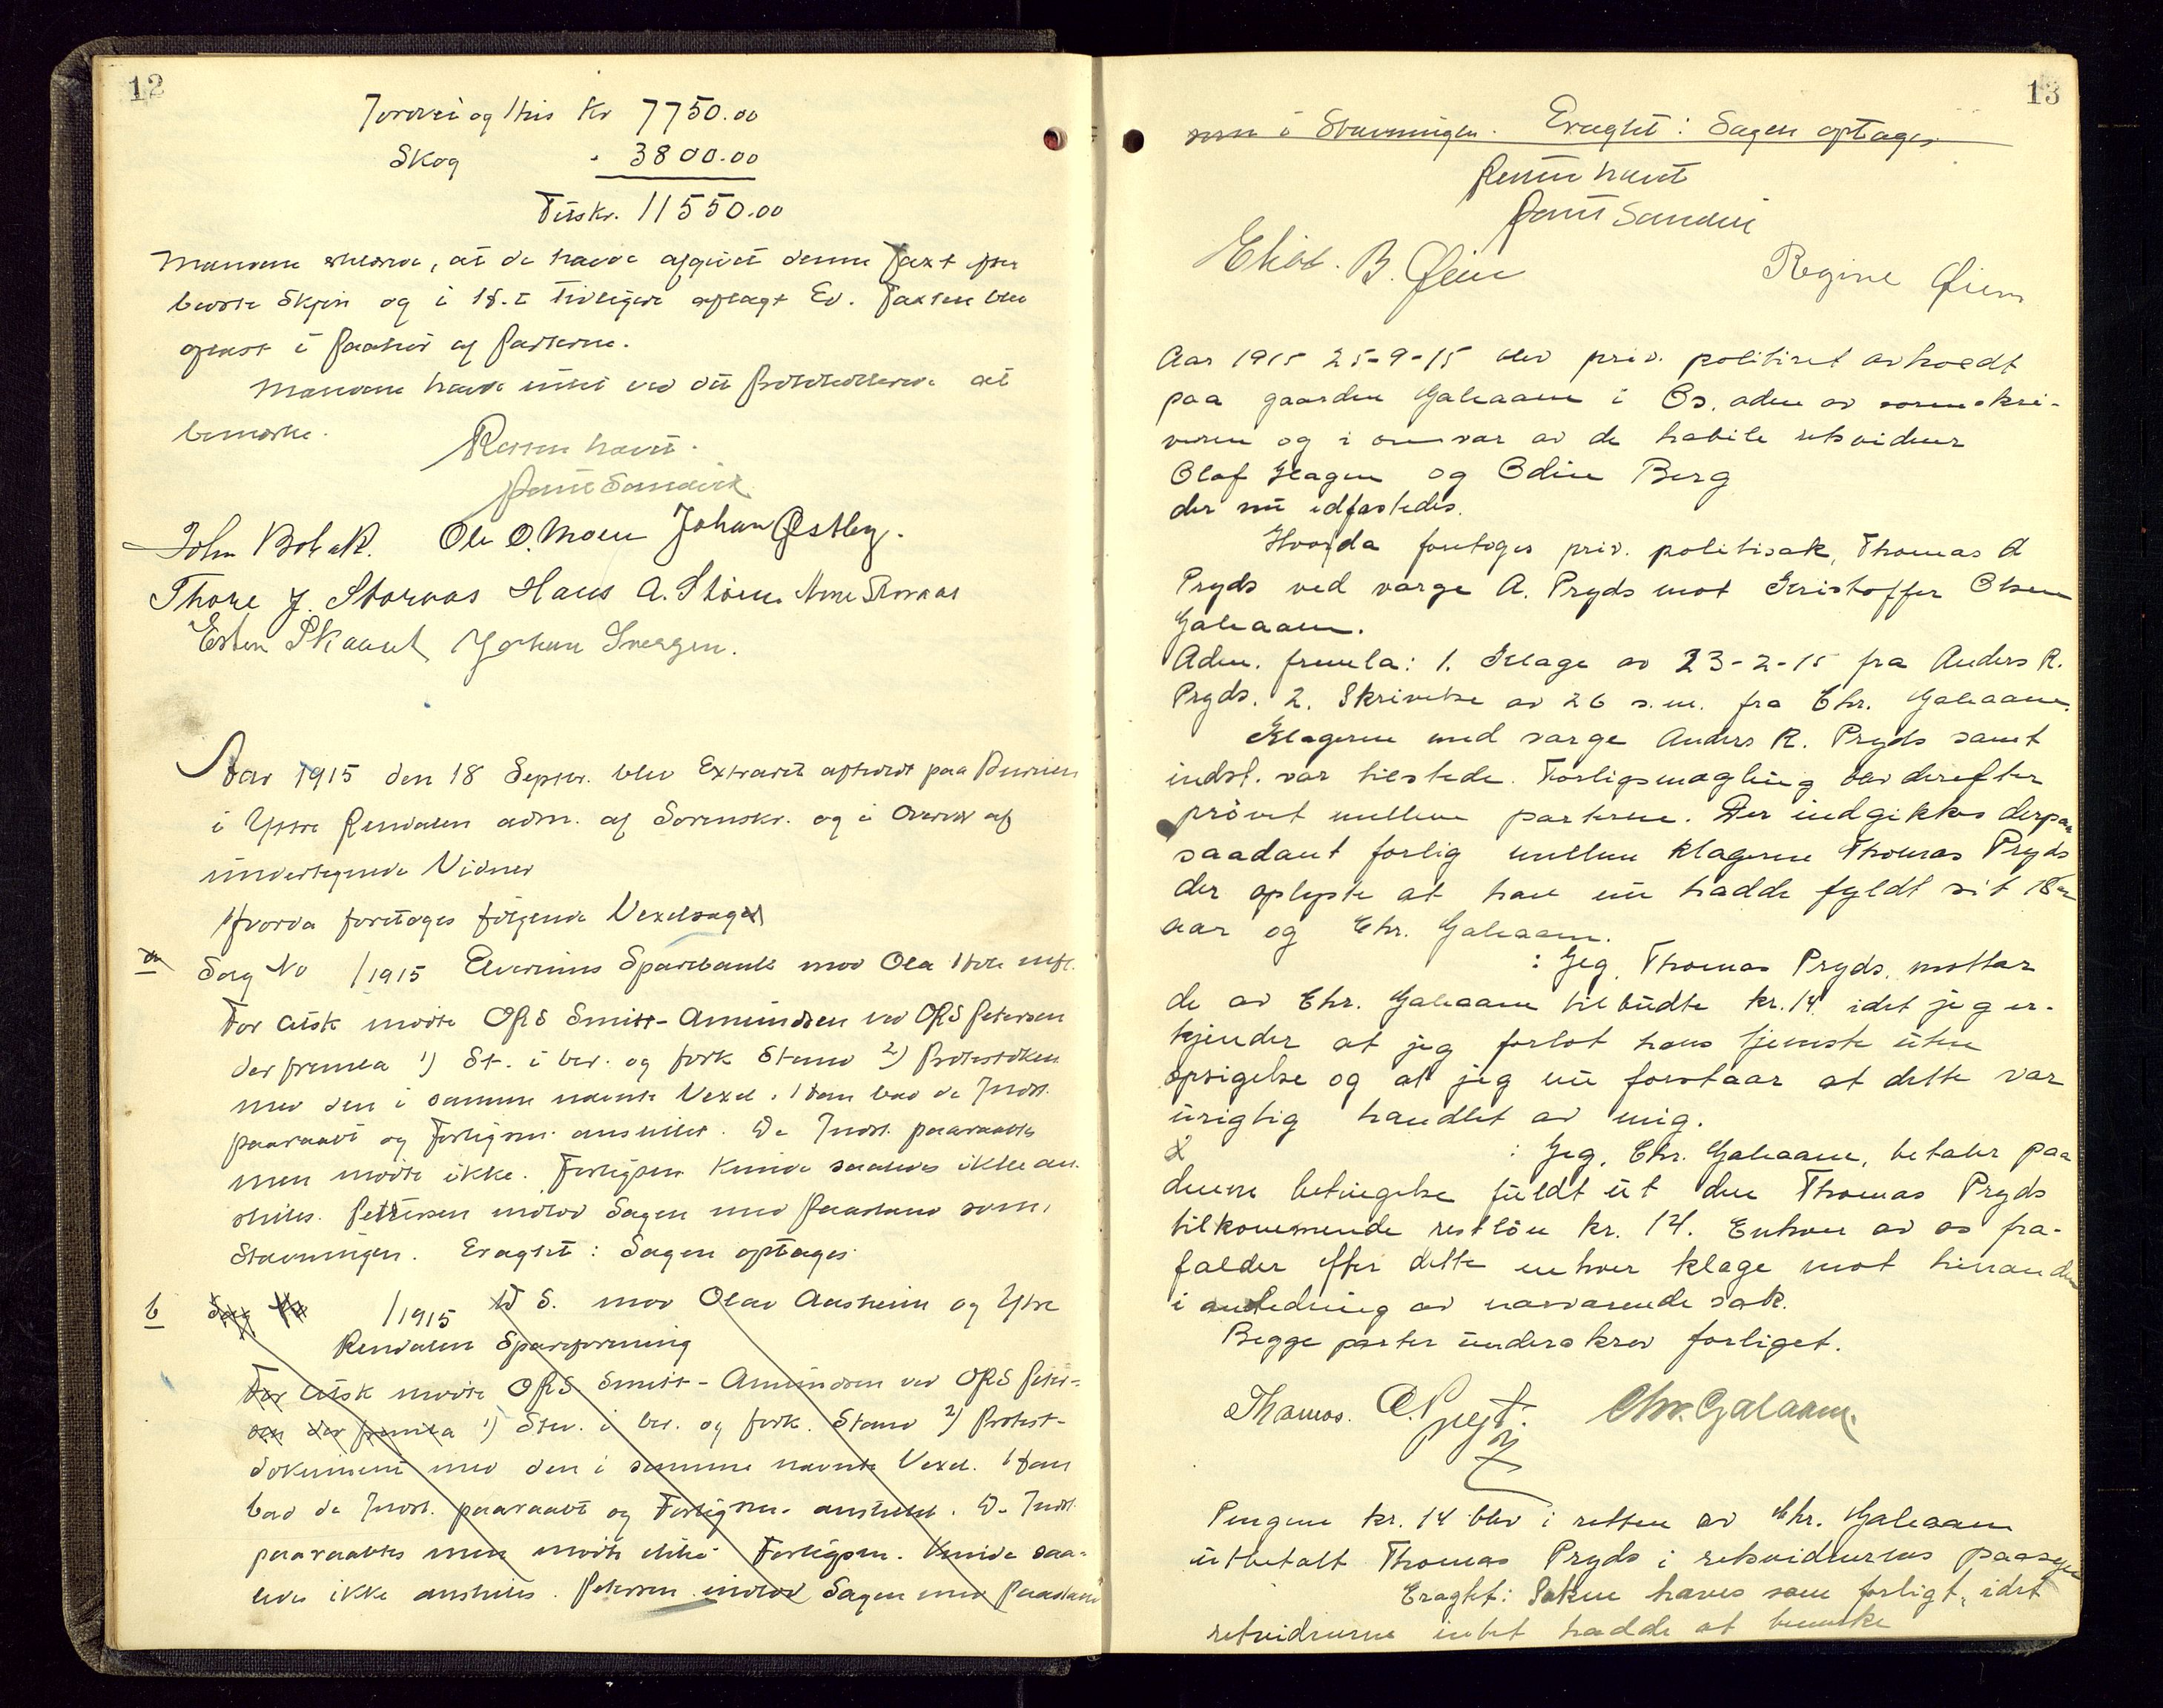 12
Jordvei og Hus Kr 7750.00
Skog " 3800.00
Tilsk. 11550.00
Mændene erklærede, at de havde afgivet denne Taxt efter
bedste Skjøn og i H. t. tidligere aflagt Ed. Taxten blev
oplæst i Paahør af Parterne.
Mændene havde intet ved det Protokollerede at
bemærke.
Retten hævet.
John Bolæk. Ole O. Moen Johan Østby.
Thore J. Storaas Haus A. Støen
Esten Skaaret Johan
Aar 1915 den 18 Septbr. blev Extraret afholdt paa
i Ytre Rendalen adm. af Sorenskr. og i Overvær af
undertegnede Vidner
Hvorda foretoges følgende Vexelsager
a Sag No /1915 Elverums Sparebank mod Ola
For Citsk mødte ORS Smitt-Amundsen ved ORS Petersen
der fremla 1) St. i ber. og fork Stand 2) Protestdoken
med den i samme nævnte Vexel. Han bad de Indst.
paaraabt og Forligsm. anstillet. De Indst. paaraabtes
men mødte ikke. Forligsm. kunde saaledes ikke an-
stilles. Petersen indlod Sagen med Paastand som i
Stævningen. Eragtet: Sagen optages.
b Sag No /1915 D S. mod Olav Aasheim og Ytre
Rendalen Spareforening
For Citsk mødte ORS Smitt-Amundsen ved ORS Peter-
sen der fremla 1) Stev. i ber. og fork. Stand 2) Protest-
dokument med den i samme nævnte Vexel. Han
bad de Indst. paaraabt og Forligsm. anstillet. De Indst.
paaraabtes men mødte ikke. Forligsm. kunde saa-
ledes ikke anstilles. Petersen indlod Sagen med Paastand
13
som i Stævningen. Eragtet: Sagen optages
Retten hævet
B. Øien Regine Øien
Aar 1915 25-9-15 blev priv. politiret avholdt
paa gaarden Galaaen i Os, adm av sorenskri-
veren og i overvær av de habile retsvidner
Olaf Hagen og Odin Berg
der nu edfæstedes.
Hvorda foretoges priv. politisak, Thomas A
Pryds ved værge A. Pryds mot Kristoffer Olsen
Galaaen.
Adm. fremla: 1. Klage av 23-2-15 fra Anders R.
Pryds. 2. Skrivelse av 26 s.m. fra Chr. Galaaen.
Klageren med værge Anders R. Pryds samt
indst. var tilstede. Forligsmægling blev derefter
prövet mellem parterne. Der indgikkes derpaa
saadant forlig mellem klageren Thomas Pryds
der oplyste at han nu hadde fyldt sit 18de
aar og Chr. Galaaen.
: Jeg, Thomas Pryds, mottar
de av Chr. Galaaen tilbudte kr. 14 idet jeg er-
kjender at jeg forlot hans tjeneste uten
opsigelse og at jeg nu forstaar at dette var
urigtig handlet av mig.
: Jeg, Chr. Galaaen, betaler paa
denne betingelse fuldt ut den Thomas Pryds
tilkommende restlön kr. 14. Enhver av os fra-
falder efter dette enhver klage mot hinanden
i anledning av nærværende sak.
Begge parter underskrev forliget.
Thomas. A. Chr. Galaaen.
Pengene kr. 14 blev i retten av Chr. Galaaen
utbetalt Thomas Pryds i retsvidnernes paasyn
Eragtet: Saken hæves som forligt, idet
retsvidnerne intet hadde at bemerke